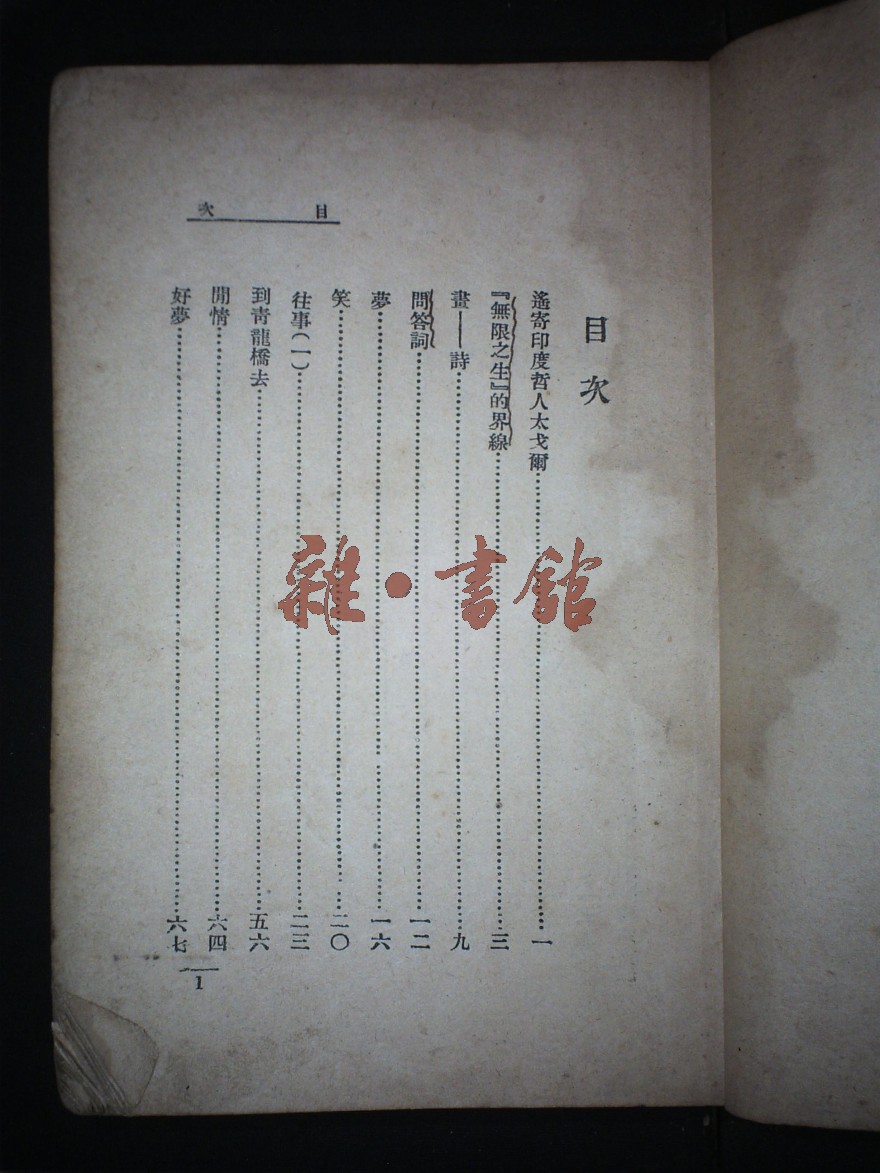 目次
目次
遙寄印度哲人太戈爾……一
『無限之生』的界線……三
畫——詩……九
問答詞……一二
夢……一六
笑……二〇
往事(一)……二三
到青龍橋去……五六
閒情……六四
好夢……六七
1
雜·書館